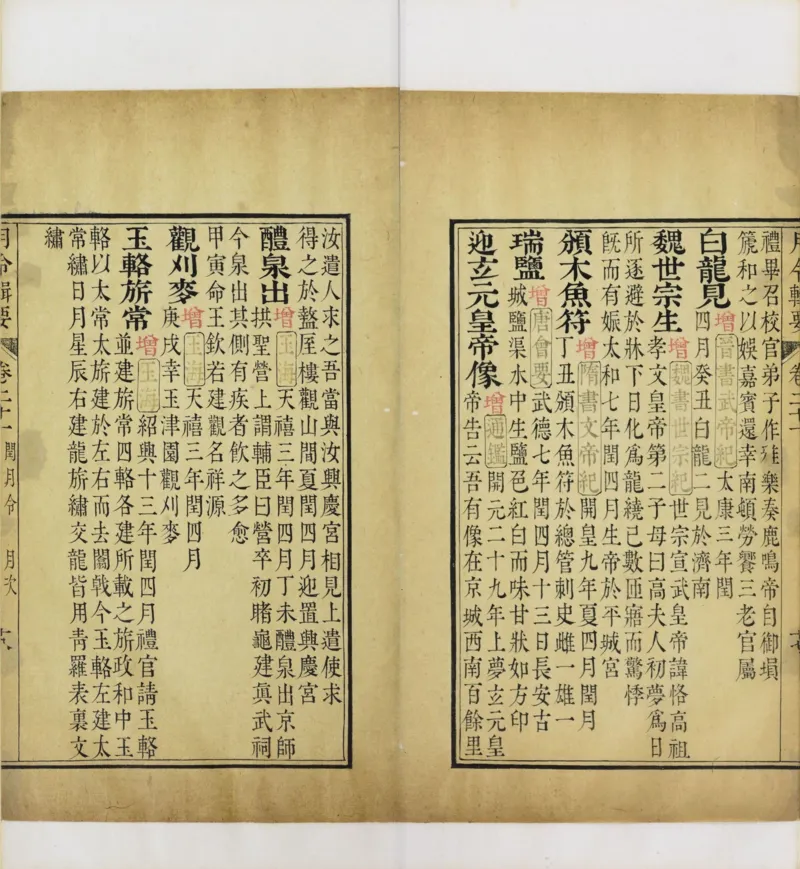 禮畢召校官弟子作雅樂奏鹿鳴帝自御塤
箎和之以娛嘉賓還幸南頓勞饗三老官屬
白龍見
增晉書武帝紀太康三年閏
四月癸丑白龍二見於濟南
魏世宗生
增魏書世宗紀世宗宣武皇帝諱恪高祖
孝文皇帝第二子母曰高夫人初夢爲日
所逐避於牀下日化爲龍繞己數匝寤而驚悸
旣而有娠太和七年閏四月生帝於平城宮
頒木魚符
增隋書文帝紀開皇九年夏四月閏月
丁丑頒木魚符於總管刺史雌一雄一
瑞鹽
增唐會要武德七年閏四月十三日長安古
城鹽渠水中生鹽色紅白而味甘狀如方印
迎玄元皇帝像
增通鑑開元二十九年上夢玄元皇
帝告云吾有像在京城西南百餘里
汝遣人求之吾當與汝興慶宮相見上遣使求
得之於盩厔樓觀山間夏閏四月迎置興慶宮
醴泉出
增玉海天禧三年閏四月丁未醴泉出京師
拱聖營上謂輔臣曰營卒初睹龜建眞武祠
今泉出其側有疾者飲之多愈
甲寅命王欽若建觀名祥源
觀刈麥
增玉海天禧三年閏四月
庚戌幸玉津園觀刈麥
玉輅旂常
增玉海紹興十三年閏四月禮官請玉輅
並建旂常四輅各建所載之旂政和中玉
輅以太常太旂建於左右而去闟戟今玉輅左建太
常繡日月星辰右建龍旂繡交龍皆用靑羅表裏文
繡
月令輯要 卷二十一 閏月令 月次